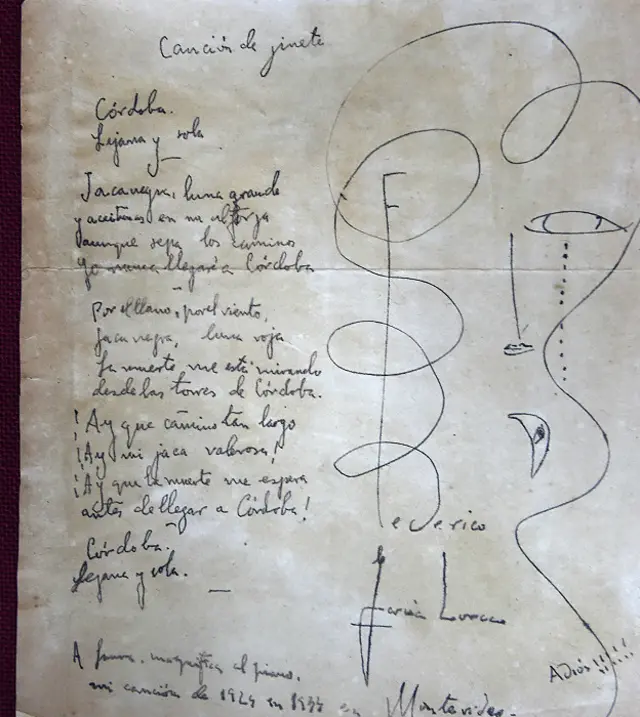 Canción de jinete
Córdoba.
Lejana y sola
Jaca negra, luna grande
y aceitunas en mi alforja
aunque sepa los caminos
yo nunca llegaré a Córdoba
Por el llano, por el viento,
jaca negra, luna roja
La muerte me está mirando
desde las torres de Córdoba.
¡Ay que camino tan largo
¡Ay mi jaca valerosa!
¡Ay que la muerte me espera
antes de llegar a Córdoba!
Córdoba.
Lejana y sola.
Federico
García Lorca
Adios!!!!!
A magnífica al piano.
mi canción de 1924 en 1934 en Montevideo.